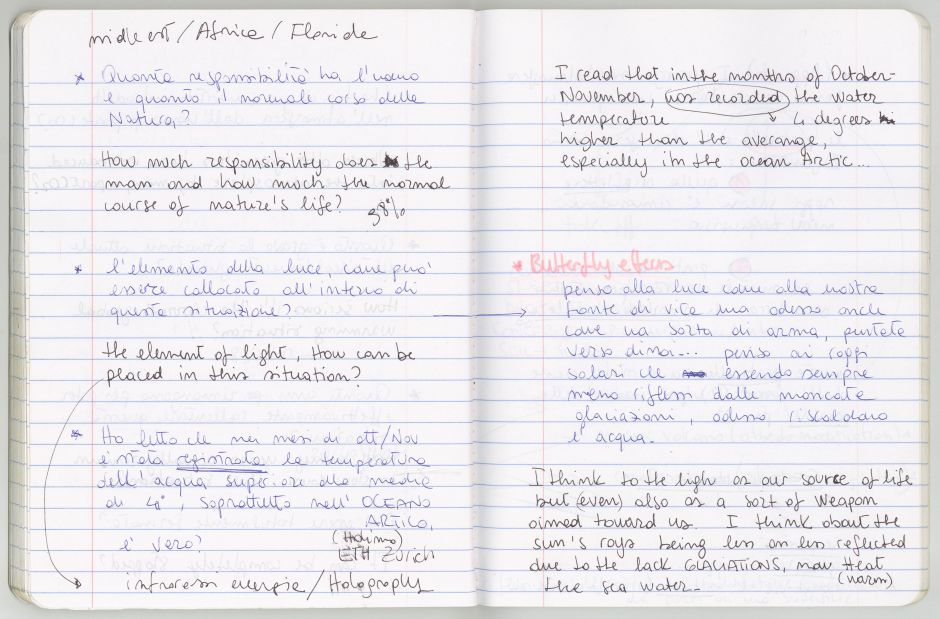 midle est / Africa / Floride
* Quanta responsibilità ha l'uomo
e quanto il normale corso della
Natura?
How much responsibility does the
man and how much the normal
course of nature's life? 38%
* l'elemento della luce, come può
essere collocato all'interno di
questa situazione?
the element of light, How can be
placed in this situation?
* Ho letto che nei mesi di ott/Nov
è stata registrata la temperatura
dell'acqua superiore alla media
di 4°, soprattutto nell'OCEANO
ARTICO,
è vero?
ETH Zurich
energie / Holography
I read that in the months of October-
November, was recorded the water
temperature 4 degrees
higher than the averange,
especially in the ocean Artic...
* Butterfly
penso alla luce come alla nostra
fonte di vita ma adesso anche
come una sorta di arma, puntata
verso di noi... penso ai raggi
solari che essendo sempre
meno riflessi dalle mancate
glaciazioni, adesso riscaldano
l'acqua.
I think to the light as our source of life
but (even) also as a sort of weapon
aimed toward us. I think about the
sun's rays being less an less reflected
due to the lack GLACIATIONS, now Heat
(warm)
the sea water-